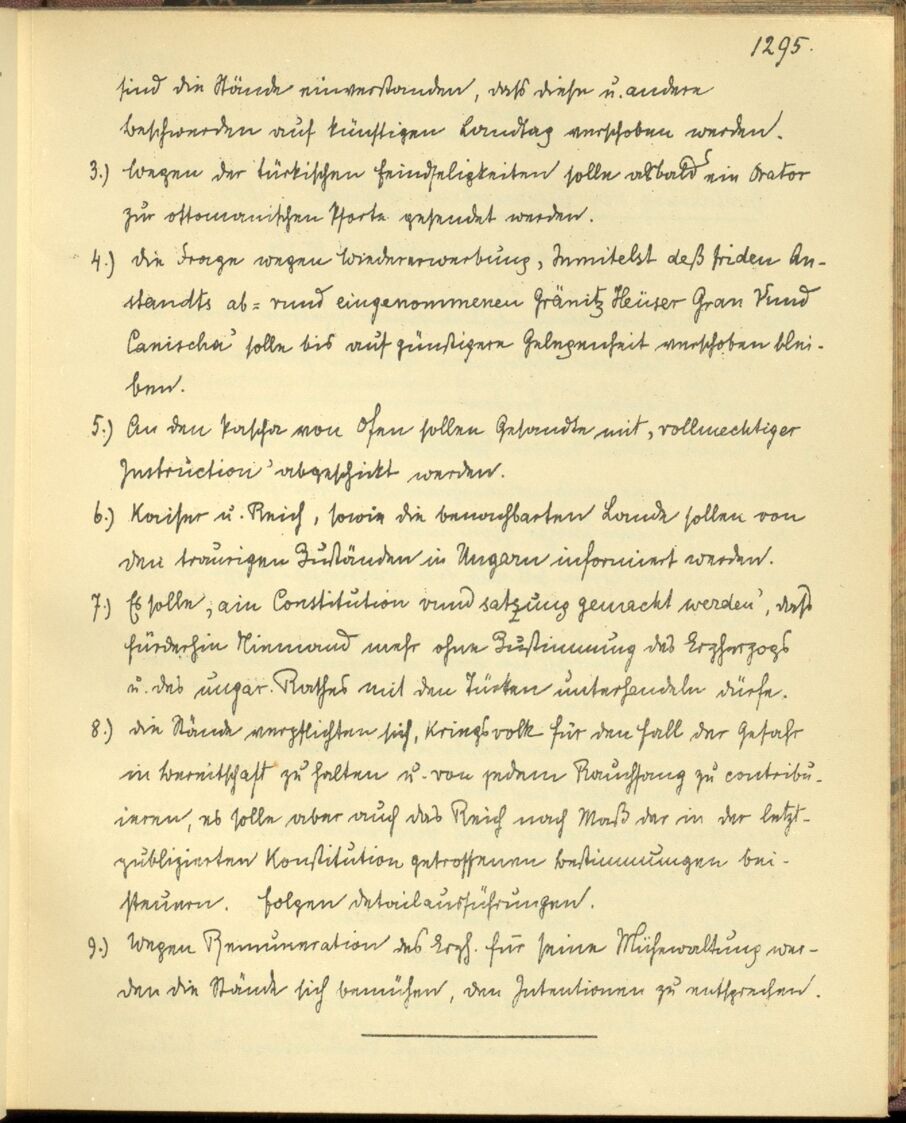 1295.
sind die Stände einverstanden, dass diese u. andere
Beschwerden auf künftigen Landtag verschoben werden.
3.) Wegen der türkischen Feindseligkeiten solle alsbald ein Orator
zur ottomanischen Pforte gesendet werden.
4.) Die Frage wegen Wiedererwerbung, Inmitelst deß friden An-
standts ab= vnnd eingenommenen Gränitz Heüser Gran Vnnd
Canischa' solle bis auf günstigere Gelegenheit verschoben blei-
ben.
5.) An den Pascha von Ofen sollen Gesandte mit, vollmechtiger
Instruction' abgeschickt werden.
6.) Kaiser u. Reich, sowie die benachbarten Lande sollen von
den traurigen Zuständen in Ungarn informiert werden.
7.) Es solle, ain Constitution vnnd satzung gemacht werden', daß
fürderhin Niemand mehr ohne Zustimmung des Erzherzogs
u. des ungar. Rathes mit den Türken unterhandeln dürfe.
8.) Die Stände verpflichten sich, Kriegsvolk für den Fall der Gefahr
in Bereitschaft zu halten u. von jedem Rauchfang zu contribu-
ieren, es solle aber auch das Reich nach Maß der in der letzt-
publizierten Konstitution getroffenen Bestimmungen bei-
steuern. Folgen Detailausführungen.
9.) Wegen Remuneration des Erzh. für seine Mühewaltung wer-
den die Stände sich bemühen, den Intentionen zu entsprechen.